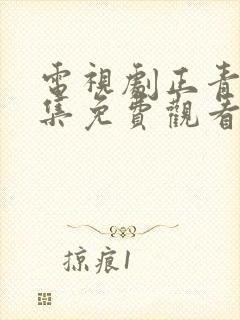 電視劇正青
集免費觀看
掠痕1